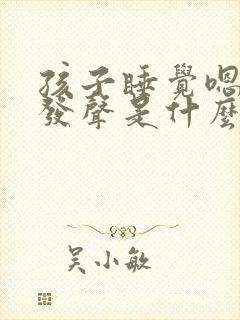 孩子睡覺嗯
發聲是什麼
吴小敏